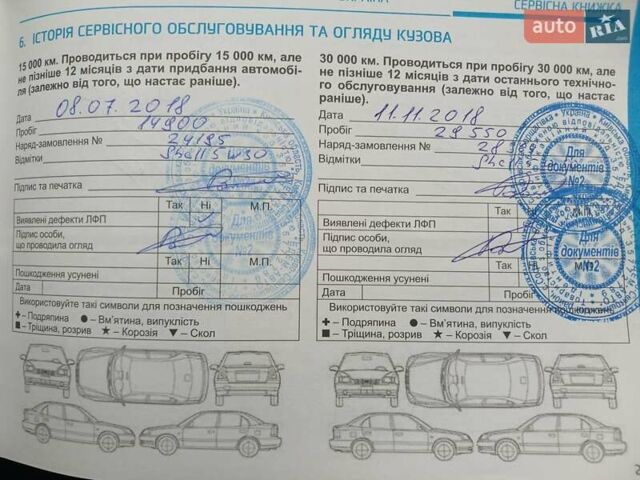 УКРАЇНА
СЕРВІСНА КНИЖКА
auto RIA
6. ІСТОРІЯ СЕРВІСНОГО ОБСЛУГОВУВАННЯ ТА ОГЛЯДУ КУЗОВА
15 000 км. Проводиться при пробігу 15 000 км, але
не пізніше 12 місяців з дати придбання автомобі-
ля (залежно від того, що настає раніше).
Дата 08.07.2018
Пробіг 14900
Наряд-замовлення № 24195
Відмітки Shell 5w30
Підпис та печатка
Так Ні М.П.
Виявлені дефекти ЛФП
Підпис особи,
що проводила огляд
Для
документів
№2
Так Ні М.П.
Пошкодження усунені
Дата Пробіг
Використовуйте такі символи для позначення пошкоджень
+ – Подряпина ● – Вм'ятина, випуклість
■ – Тріщина, розрив ★ – Корозія ▼ – Скол
30 000 км. Проводиться при пробігу 30 000 км, але
не пізніше 12 місяців з дати останнього технічно-
го обслуговування (залежно від того, що настає
раніше).
Дата 11.11.2018
Пробіг 29550
Наряд-замовлення № 283
Відмітки Shell
Підпис та печатка
Для
документів
№2
Так
Виявлені дефекти ЛФП
Підпис особи,
що проводила огляд
Для
документів
№2
Так Ні М.П.
Пошкодження усунені
Дата Пробіг
Використовуйте такі символи для позначення пошкоджень
+ – Подряпина ● – Вм'ятина, випуклість
■ – Тріщина, розрив ★ – Корозія ▼ – Скол